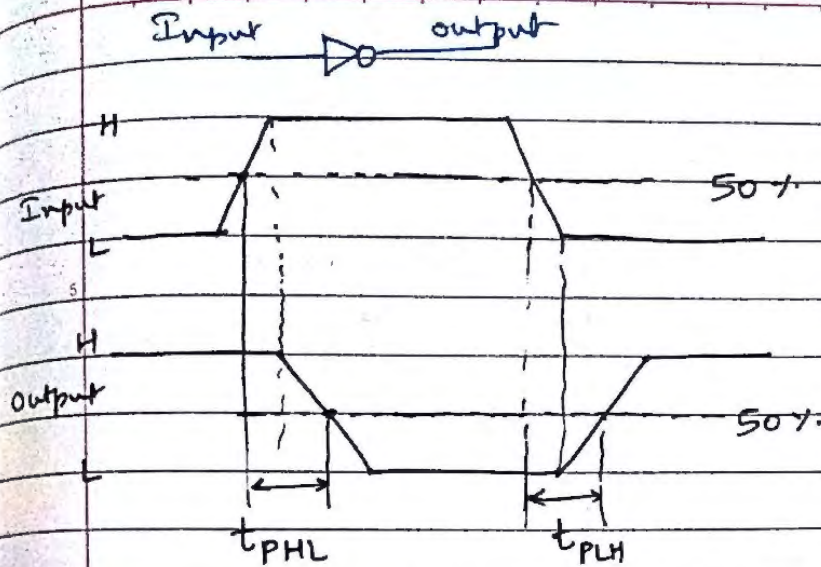 Input output
H
50 %
Input
L
5
H
Output
50 %.
L
tPHL tPLH